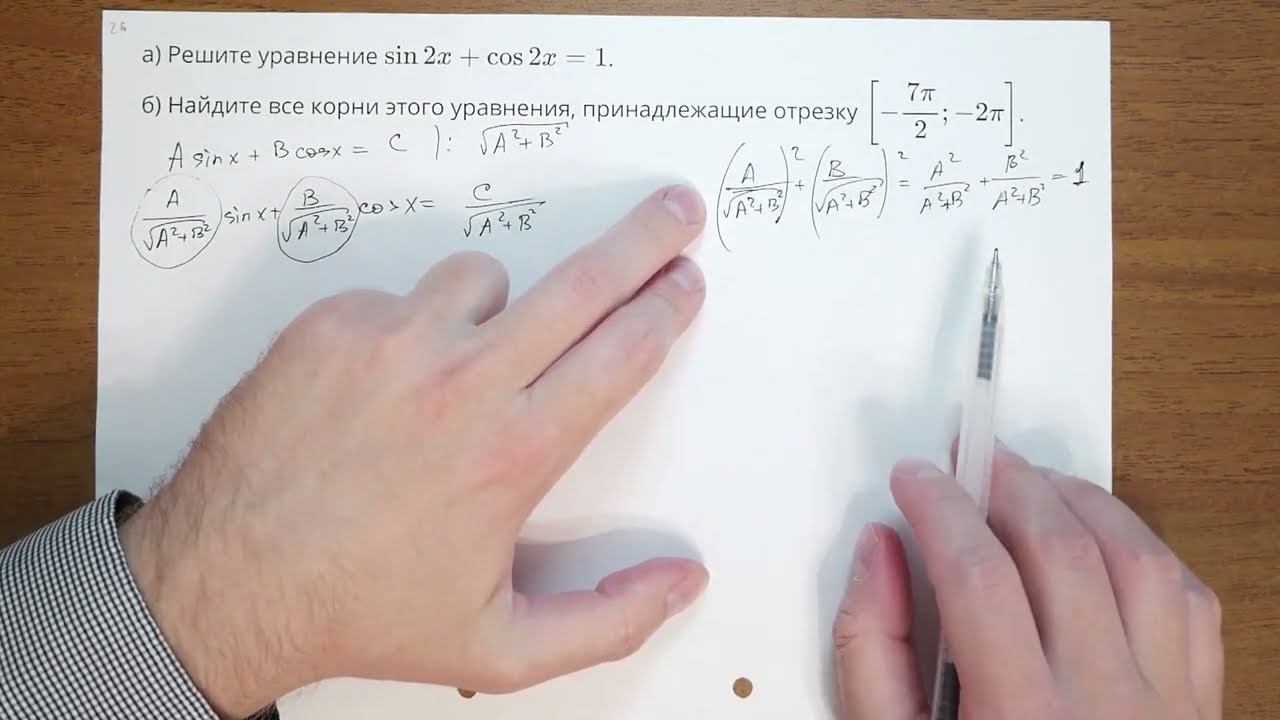 26
а) Решите уравнение sin 2x + cos 2x = 1.
б) Найдите все корни этого уравнения, принадлежащие отрезку [−7π/2; −2π].
A sin x + B cos x = C | : √(A²+B²)
A/√(A²+B²) sin x + B/√(A²+B²) cos x = C/√(A²+B²)
(A/√(A²+B²))² + (B/√(A²+B²))² = A²/(A²+B²) + B²/(A²+B²) = 1